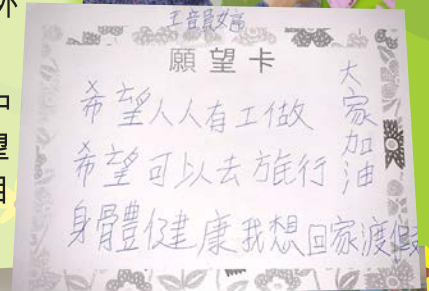 願望卡
希望人人有工做
希望可以去旅行
身體健康我想回家渡假
大家加油